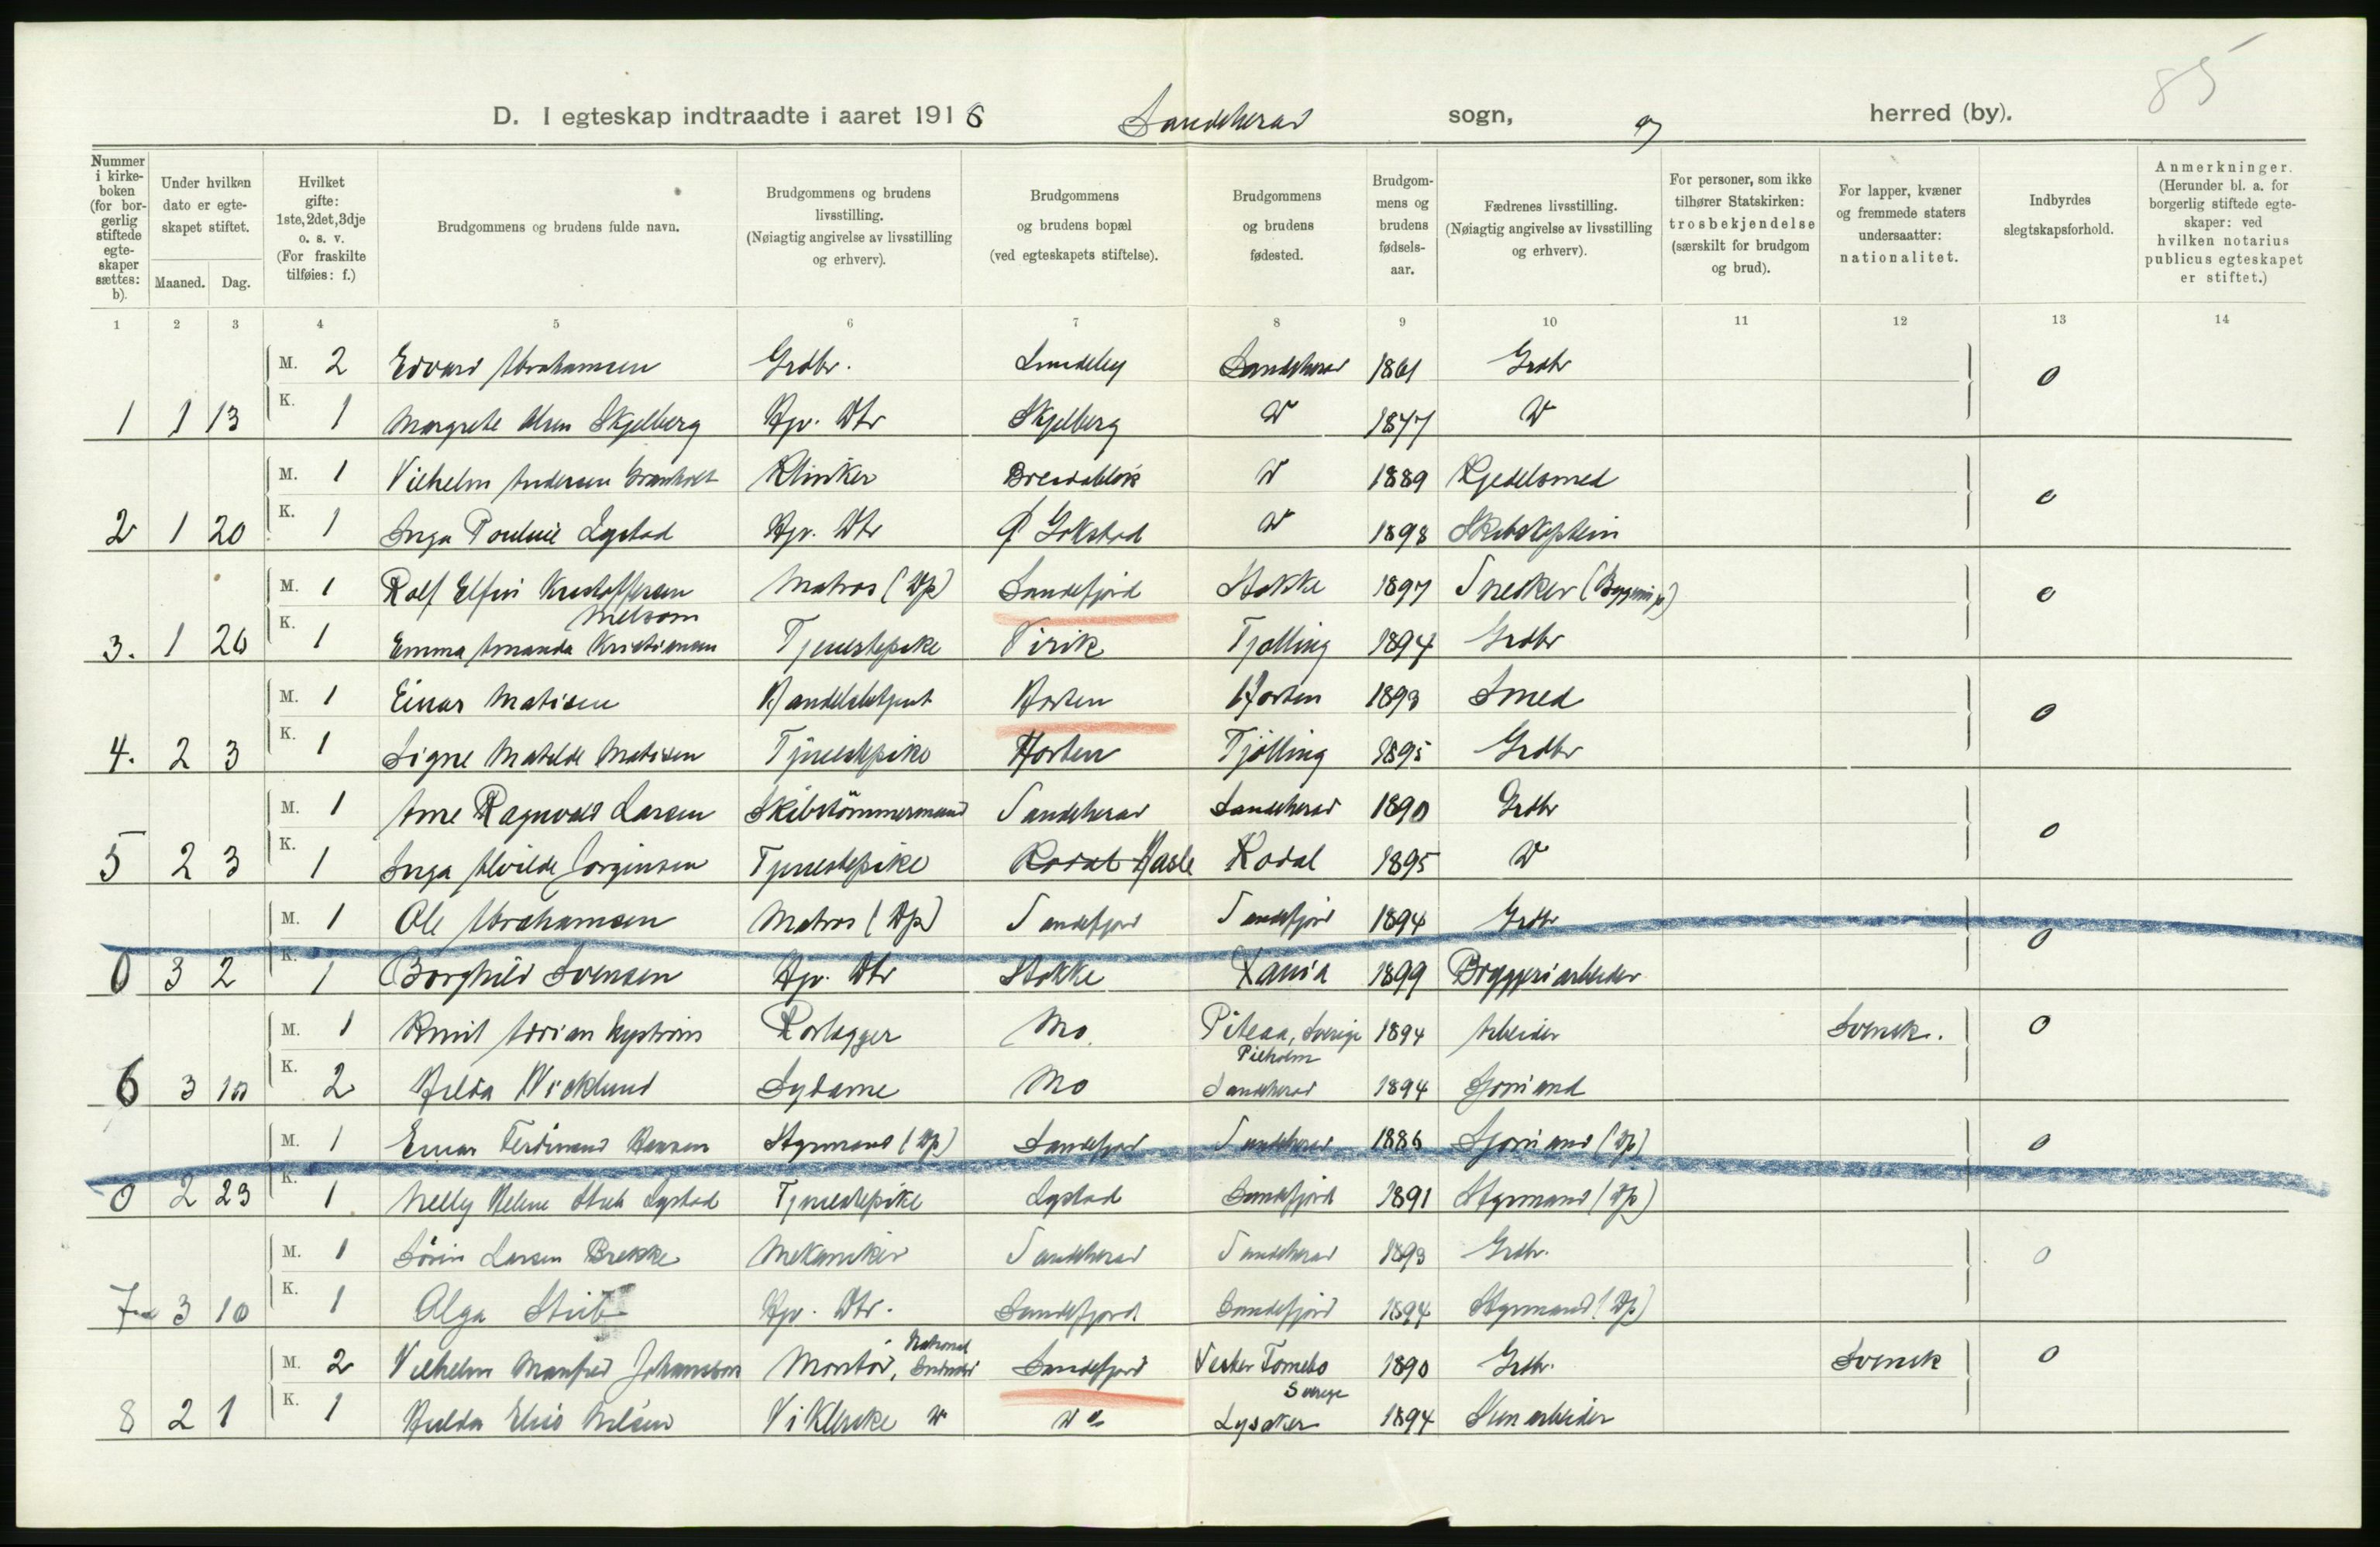 85
D. I egteskap indtraadte i aaret 1918 Sandeherad sogn, og herred (by).
Nummer i kirke-boken (for bor-gerlig stiftede egte-skaper sættes: b).
Under hvilken dato er egte-skapet stiftet.
Maaned. Dag.
Hvilket gifte: 1ste, 2det, 3dje o. s. v. (For fraskilte tilføies: f.)
Brudgommens og brudens fulde navn.
Brudgommens og brudens livsstilling. (Nøiagtig angivelse av livsstilling og erhverv).
Brudgommens og brudens bopæl (ved egteskapets stiftelse).
Brudgommens og brudens fødested.
Brudgom-mens og brudens fødsels-aar.
Fædrenes livsstilling. (Nøiagtig angivelse av livsstilling og erhverv).
For personer, som ikke tilhører Statskirken: trosbekjendelse (særskilt for brudgom og brud).
For lapper, kvæner og fremmede staters undersaatter: nationalitet.
Indbyrdes slegtskapsforhold.
Anmerkninger. (Herunder bl. a. for borgerlig stiftede egte-skaper: ved hvilken notarius publicus egteskapet er stiftet.)
1 2 3 4 5 6 7 8 9 10 11 12 13 14
M. 2 Edvard Abrahamsen Grdbr. Lundeby Sandeherad 1861 Grdbr 0
1 1 13 K. 1 Margrete Olsen Skjelberg Hjv. Dtr Skjelberg 1877
M. 1 Vilhelm Andersen Granholt Klinker Breidablik 1889 Kjedelsmed 0
2 1 20 K. 1 Inga Pouline Lystad Hjv. Dtr Gokstad 1898 Skibskaptein
M. 1 Rolf Elfin Kristoffersen Melsom Matros (Dp) Sandefjord Stokke 1897 Snedker 0
3. 1 26 K. 1 Emma Amanda Kristiansen Tjenestepike Virik Tjølling 1894 Grdbr
M. 1 Einar Matisen Handelsbetjent Horten Horten 1893 Smed 0
4. 2 3 K. 1 Signe Matilde Matisen Tjenestepike Horten Tjølling 1895 Grdbr
M. 1 Arne Ragnvald Larsen Skibstømmermand Sandeherad Sandeherad 1890 Grdbr 0
5 2 3 K. 1 Inga Alvilde Jørgensen Tjenestepike Kodal Hasle Kodal 1895
M. 1 Ole Abrahamsen Matros (Dp) Sandefjord Sandefjord 1894 Grdbr 0
0 3 2 K. 1 Borghild Svensen Hjv. Dtr Stokke 1899 Bryggeriarbeider
M. 1 Knut Adrian Nystrøm Rørlægger Mo Piteaa, Sverige 1894 Arbeider Svensk. 0
6 3 10 K. 2 Hilda Wicklund Sydame Mo Sandeherad 1894 Sjømand
M. 1 Einar Ferdinand Hansen Styrmand (Dp) Sandefjord Sandeherad 1886 Sjømand (Dp) 0
0 2 23 K. 1 Nelly Helene Stub Lystad Tjenestepike Lystad Sandefjord 1891 Styrmand (Dp)
M. 1 Sørin Larsen Brekke Mekaniker Sandeherad Sandeherad 1893 Grdbr. 0
7 3 10 K. 1 Olga Stub Hjv. Dtr. Sandefjord Sandefjord 1894 Styrmand (Dp)
M. 2 Vilhelm Manfred Johansson Montør, National Industri Sandefjord 1890 Grdbr. Svensk 0
8 2 1 K. 1 Hulda Elise Nilsen Viklerske Lysaker 1894 Stenarbeider